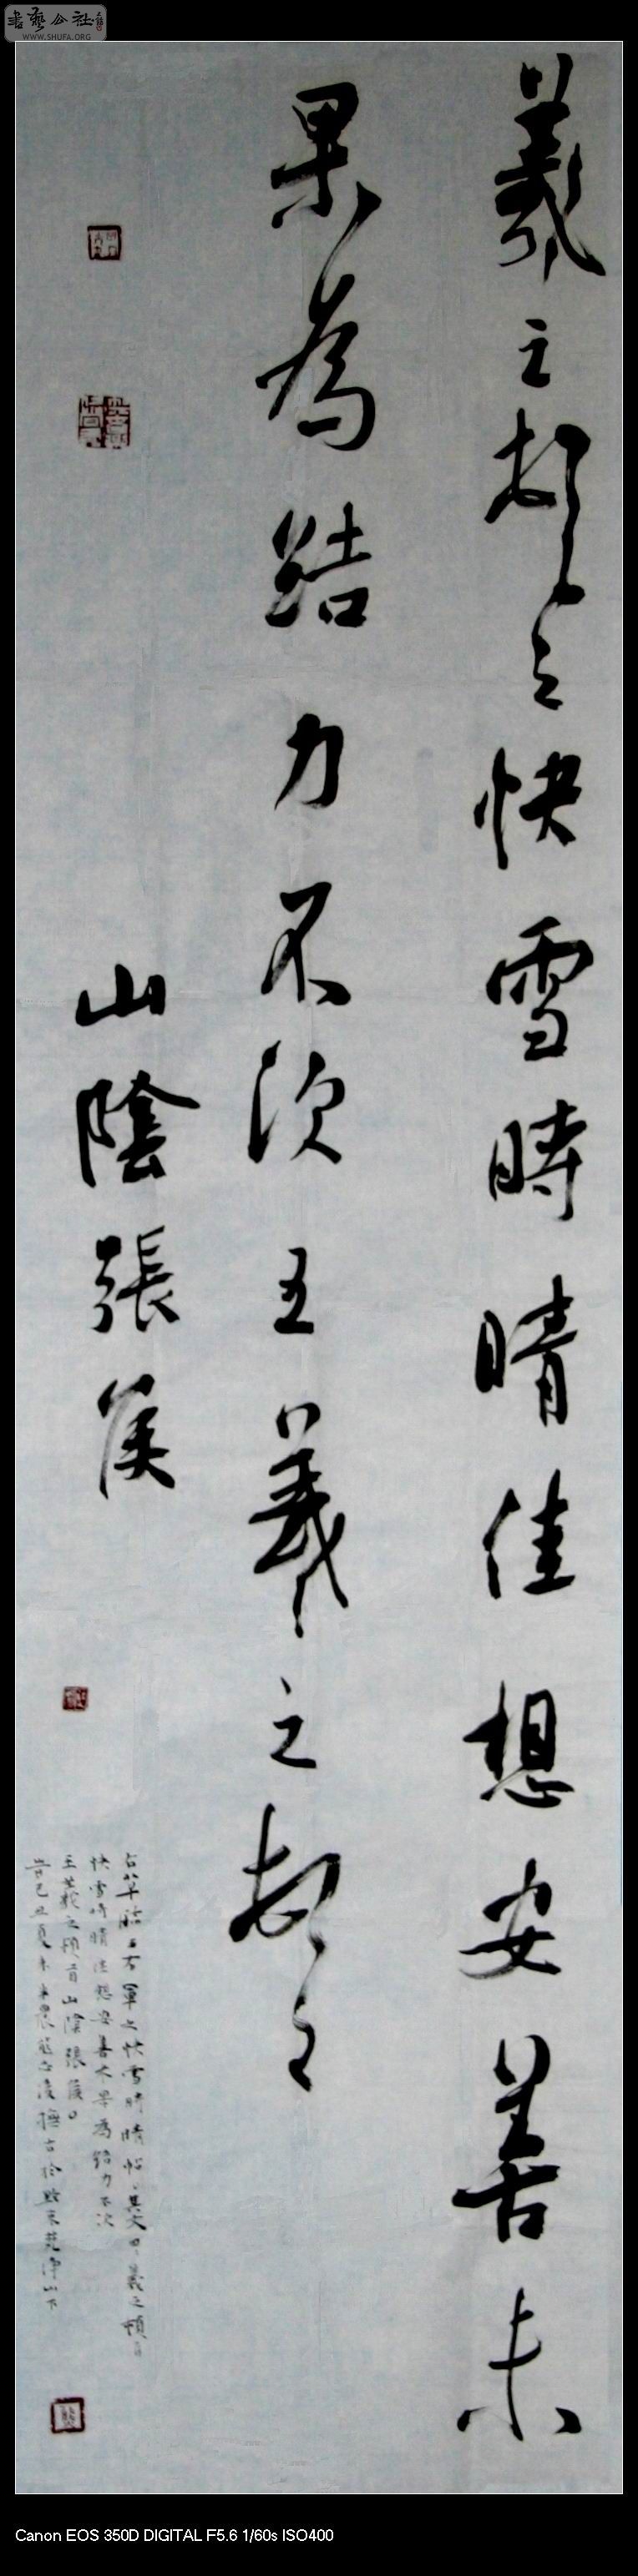 書藝公社
WWW.SHUFA.ORG
羲之頓首快雪時晴佳想安善未
果為結力不次王羲之頓首
山陰張侯
右八草臨王右軍之快雪時晴帖其文曰羲之頓首
快雪時晴佳想安善未果為結力不次
王羲之頓首山陰張侯
Canon EOS 350D DIGITAL F5.6 1/60s ISO400